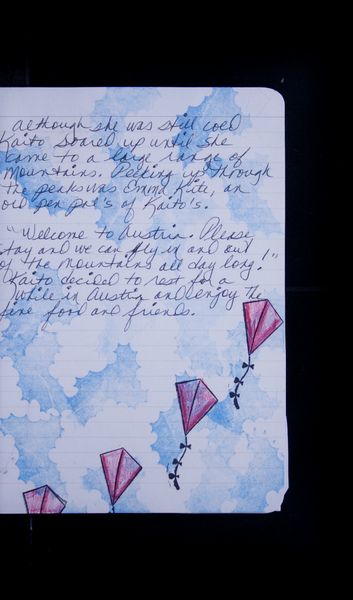 although she was still cold
Kaito soared up until she
came to a large range of
Mountains. Peeking up through
the peaks was Emma Kite, an
old pen pal's of Kaito's.
"Welcome to Austria. Please
stay and we can fly in and out
of the mountains all day long!"
Kaito decided to rest for a
while in Austria and enjoy the
fine food and friends.